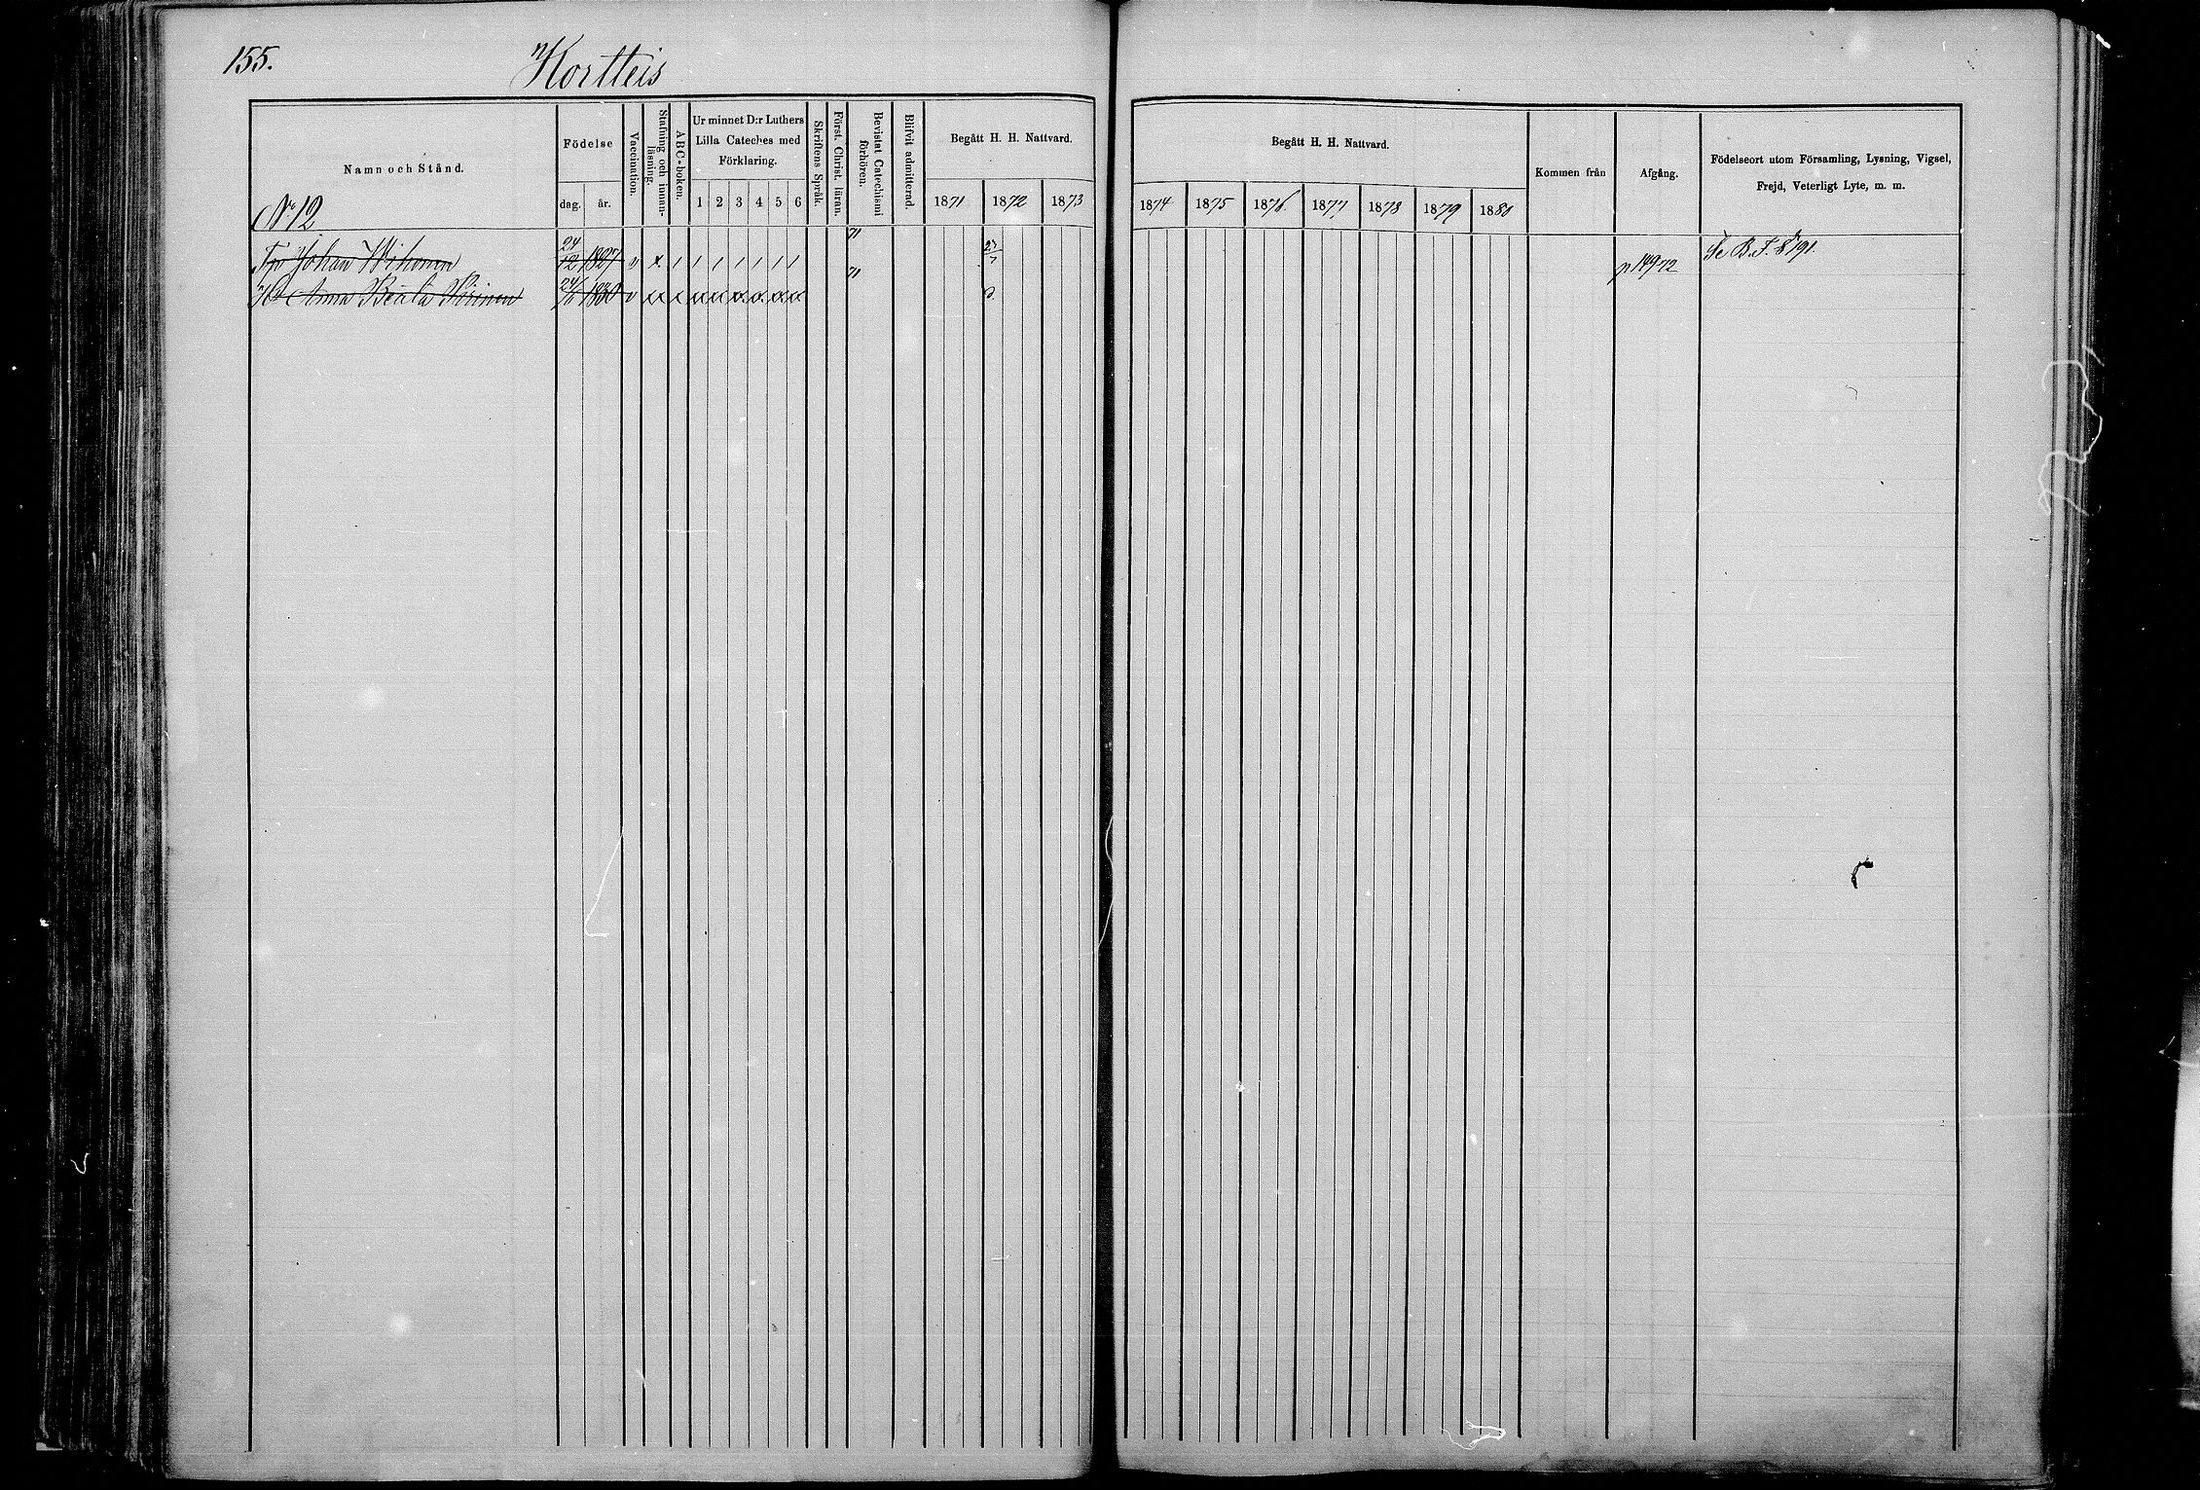 155.
Kortteis
Namn och Stånd.
Födelse
dag.
år.
Vaccination.
Stafning och innan-
läsning.
ABC-boken.
Ur minnet D:r Luthers
Lilla Cateches med
Förklaring.
1 2 3 4 5 6
Skriftens Språk.
Först. Christ. läran.
Bevistat Catechismi
förhören.
Blifvit admitterad.
Begått H. H. Nattvard.
1871 1872 1873
Begått H. H. Nattvard.
1874 1875 1876 1877 1878 1879 1880
Kommen från
Afgång.
Födelseort utom Församling, Lysning, Vigsel,
Frejd, Veterligt Lyte, m. m.
No 12
Johan Wihonen 24/12 1827 v x 71 23/7 p 149 72 Se B. F. S 191
Anna Beata 1830 v 71 d.